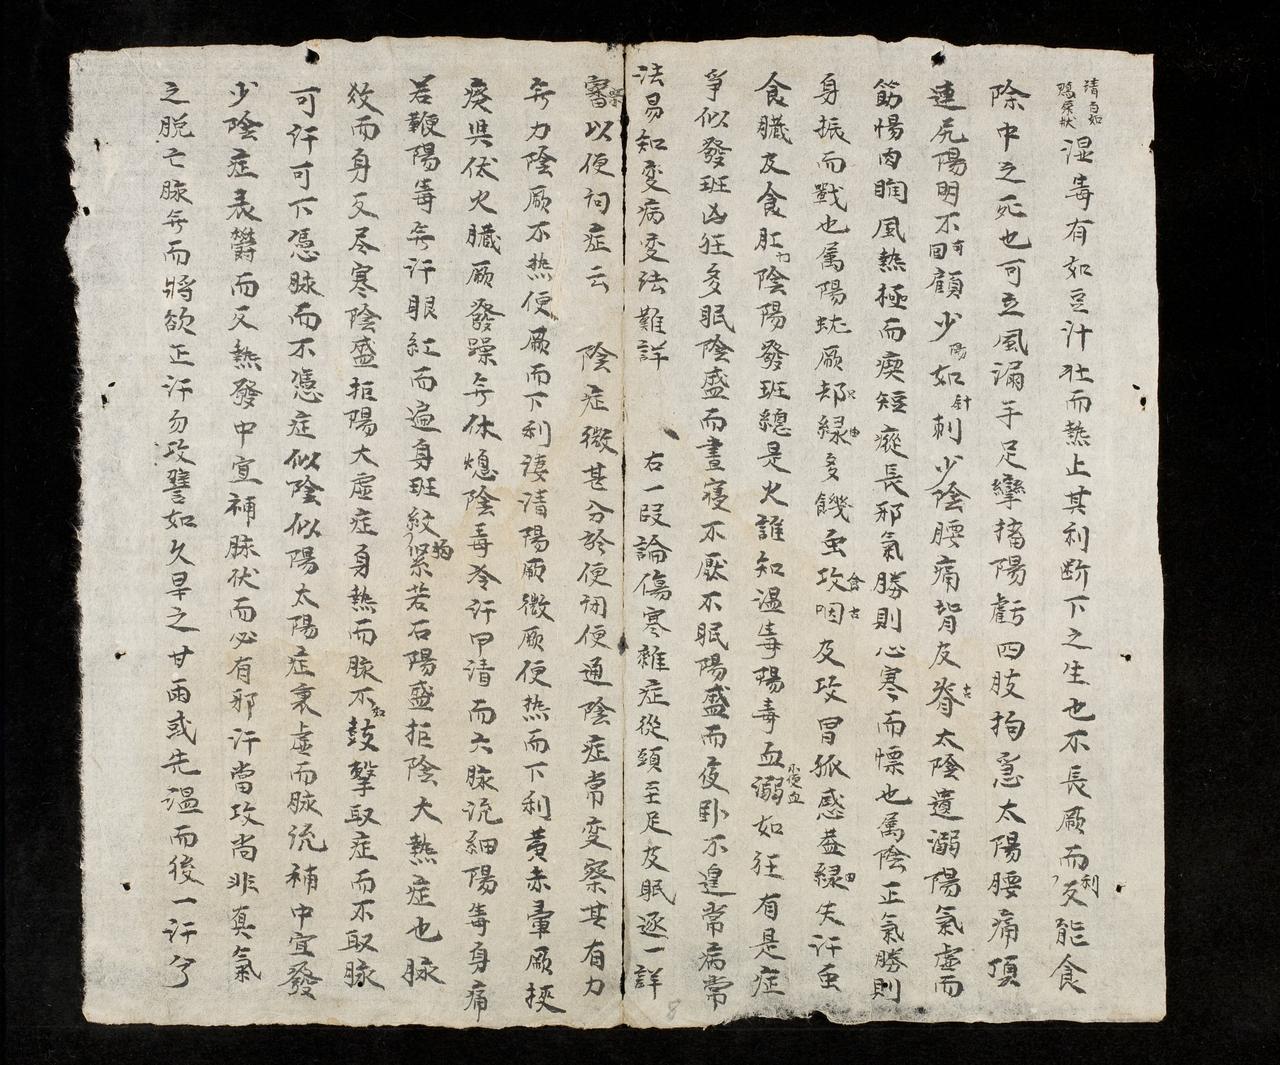 清白如
鴉尿狀
湿毒有如豆汁壮而熱上其利断下之生也不長厥而利反能食
除中之死也可立風漏手足攣搐陽虧四肢拘急太陽腰痛頂
連尻陽明不可回顧少陽如針刺少陰腰痛背反脊太陰遺溺陽氣虚而
筋惕肉瞤風熱極而瘈短瘲長邪氣勝則心寒而慄也属陰正氣勝則
身振而戰也属陽蚘厥却緣由多饑虫攻咽及攻胃狐惑盖緣由失汗虫
食臟及食肛陰陽發班總是火誰知温毒陽毒血溺小便血如狂有是症
爭似發班凶狂多眠陰盛而晝寝不厭不眠陽盛而夜卧不遑常病常
法易知变病变法難詳 右一段論傷寒雜症從頭至足及眠逐一詳
審以便问症云 陰症微甚分於便闭便通陰症常变察其有力
无力陰厥不热便厥而下利淒清陽厥微厥便热而下利黄赤暈厥挾
痰與伏火臟厥發躁无休熄陰毒冷汗甲清而六脉沉細陽毒身痛
若鞭陽毒无汗眼紅而遍身班紋緊若石陽盛拒陰大熱症也脉
伏而身反尽寒陰盛拒陽大虚症身熱而脉不鼓擊取症而不取脉
可汗可下憑脉而不憑症似陰似陽太陽症裏虚而脉沉補中宜發
少陰症表欝而反熱發中宜補脉伏而必有邪汗當攻尚非真氣
之脱亡脉无而將欲正汗勿攻譬如久旱之甘雨或先温而後一汗兮
8